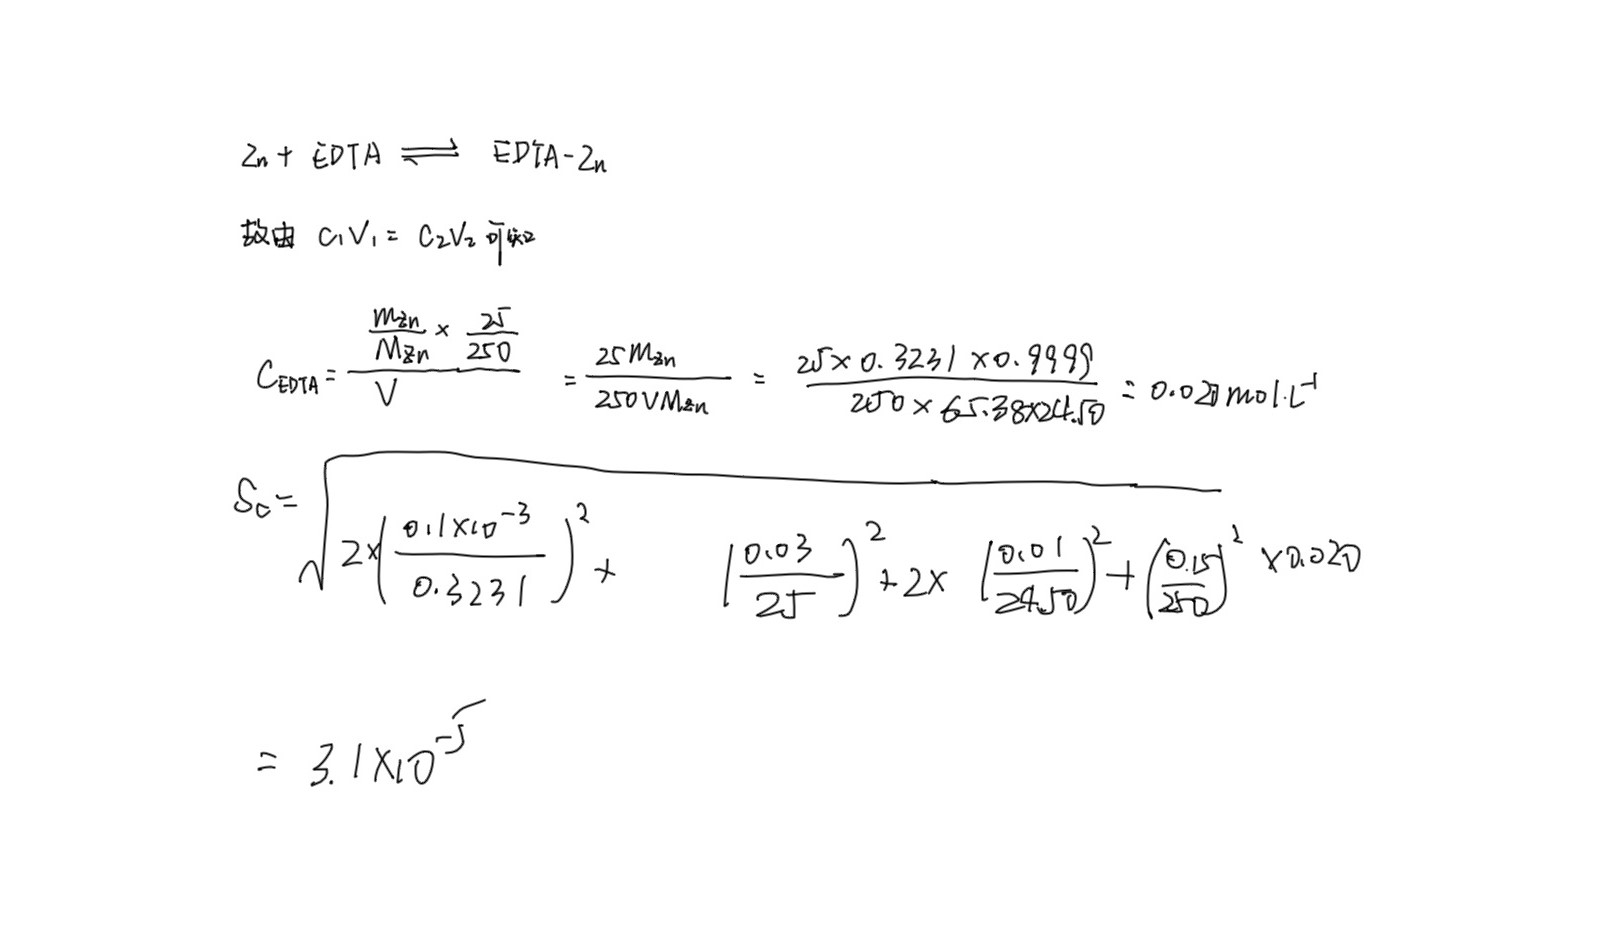 Zn + EDTA ⇌ EDTA-Zn
故由 C₁V₁ = C₂V₂ 可知
C_EDTA = (m_Zn/M_Zn × 25/250)/V = 25m_Zn/(250VM_Zn) = (25×0.3231×0.9999)/(250×65.38×24.50) = 0.020 mol·L⁻¹
S_c = √(2×(0.1×10⁻³/0.3231)² + (0.03/25)² + 2×(0.01/24.50)² + (0.15/250)²) × 0.020
= 3.1×10⁻⁵